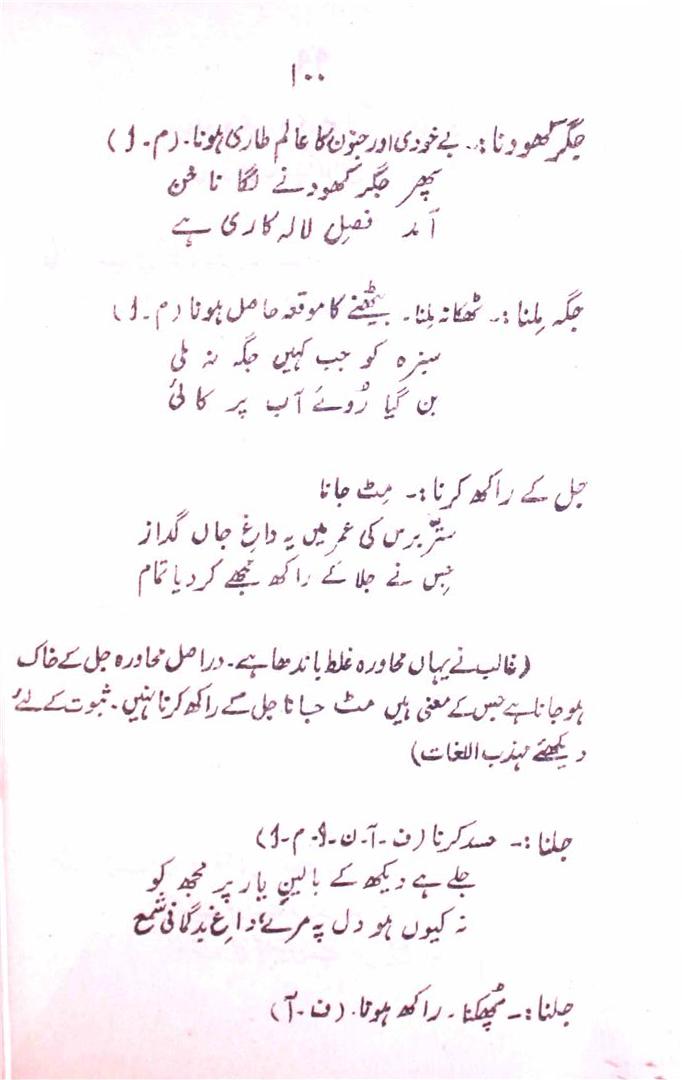 ۱۰۰
جگر کھودنا :۔ بے خودی اور جنون کا عالم طاری ہونا۔ (م۔1)
پھر جگر کھودنے لگا ناخن
آمد فصلِ لالہ کاری ہے
جگہ مِلنا :۔ ٹھکانہ مِلنا۔ بیٹھنے کا موقعہ حاصل ہونا (م۔1)
سبزہ کو جب کہیں جگہ نہ ملی
بن گیا رُوئے آب پر کائی
جل کے راکھ کرنا :۔ مِٹ جانا
ستّر برس کی عمر میں یہ داغِ جاں گداز
جِس نے جلا کے راکھ مجھے کر دیا تمام
(غالب نے یہاں محاورہ غلط باندھا ہے۔ دراصل محاورہ جل کے خاک
ہو جانا ہے جس کے معنی ہیں مٹ جانا جل کے راکھ کرنا نہیں۔ ثبوت کے لئے
دیکھئے مہذب اللغات)
جلنا :۔ حسد کرنا (ف۔آ۔ن۔1۔م۔1)
جلے ہے دیکھ کے بالینِ یار پر مجھ کو
نہ کیوں ہو دل پہ مرے داغِ بدگمانی شمع
جلنا :۔ پُھکنا۔ راکھ ہونا۔ (ف۔آ)